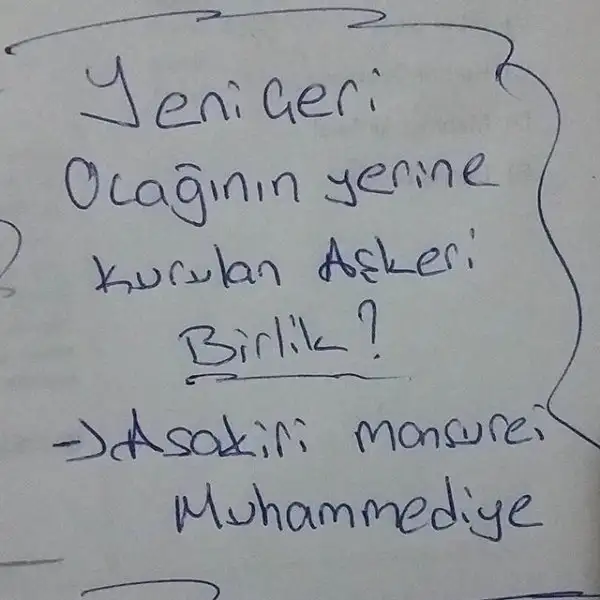 Yeniçeri
Ocağının yerine
kurulan Askeri
Birlik?
→ Asakiri mansurei
Muhammediye